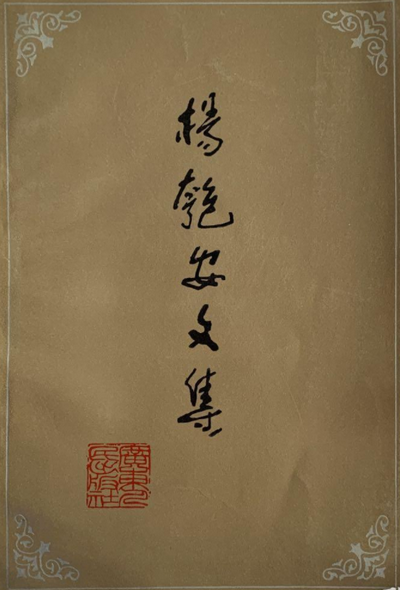 楊匏安文集
廣東人民出版社